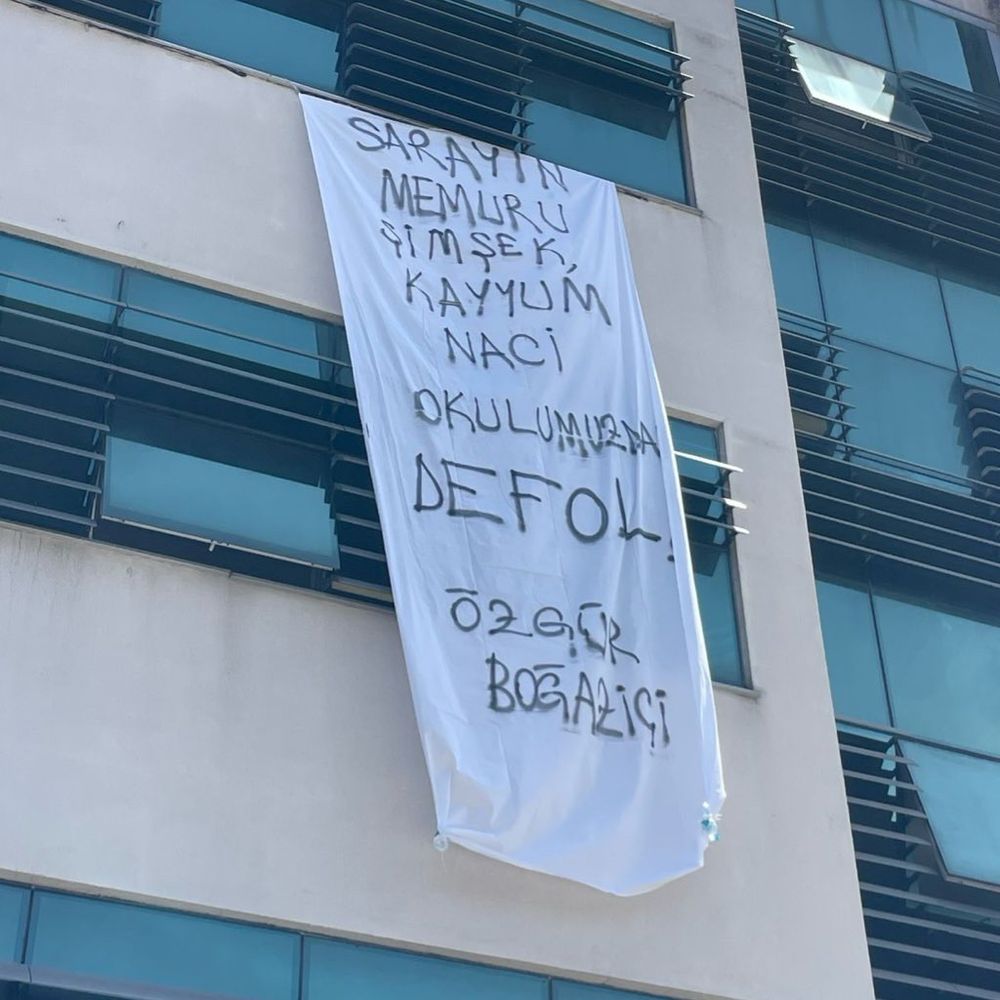 SARAYIN
MEMURU
ŞİMŞEK,
KAYYUM
NACİ
OKULUMUZDA
DEFOL!
ÖZGÜR
BOĞAZİÇİ